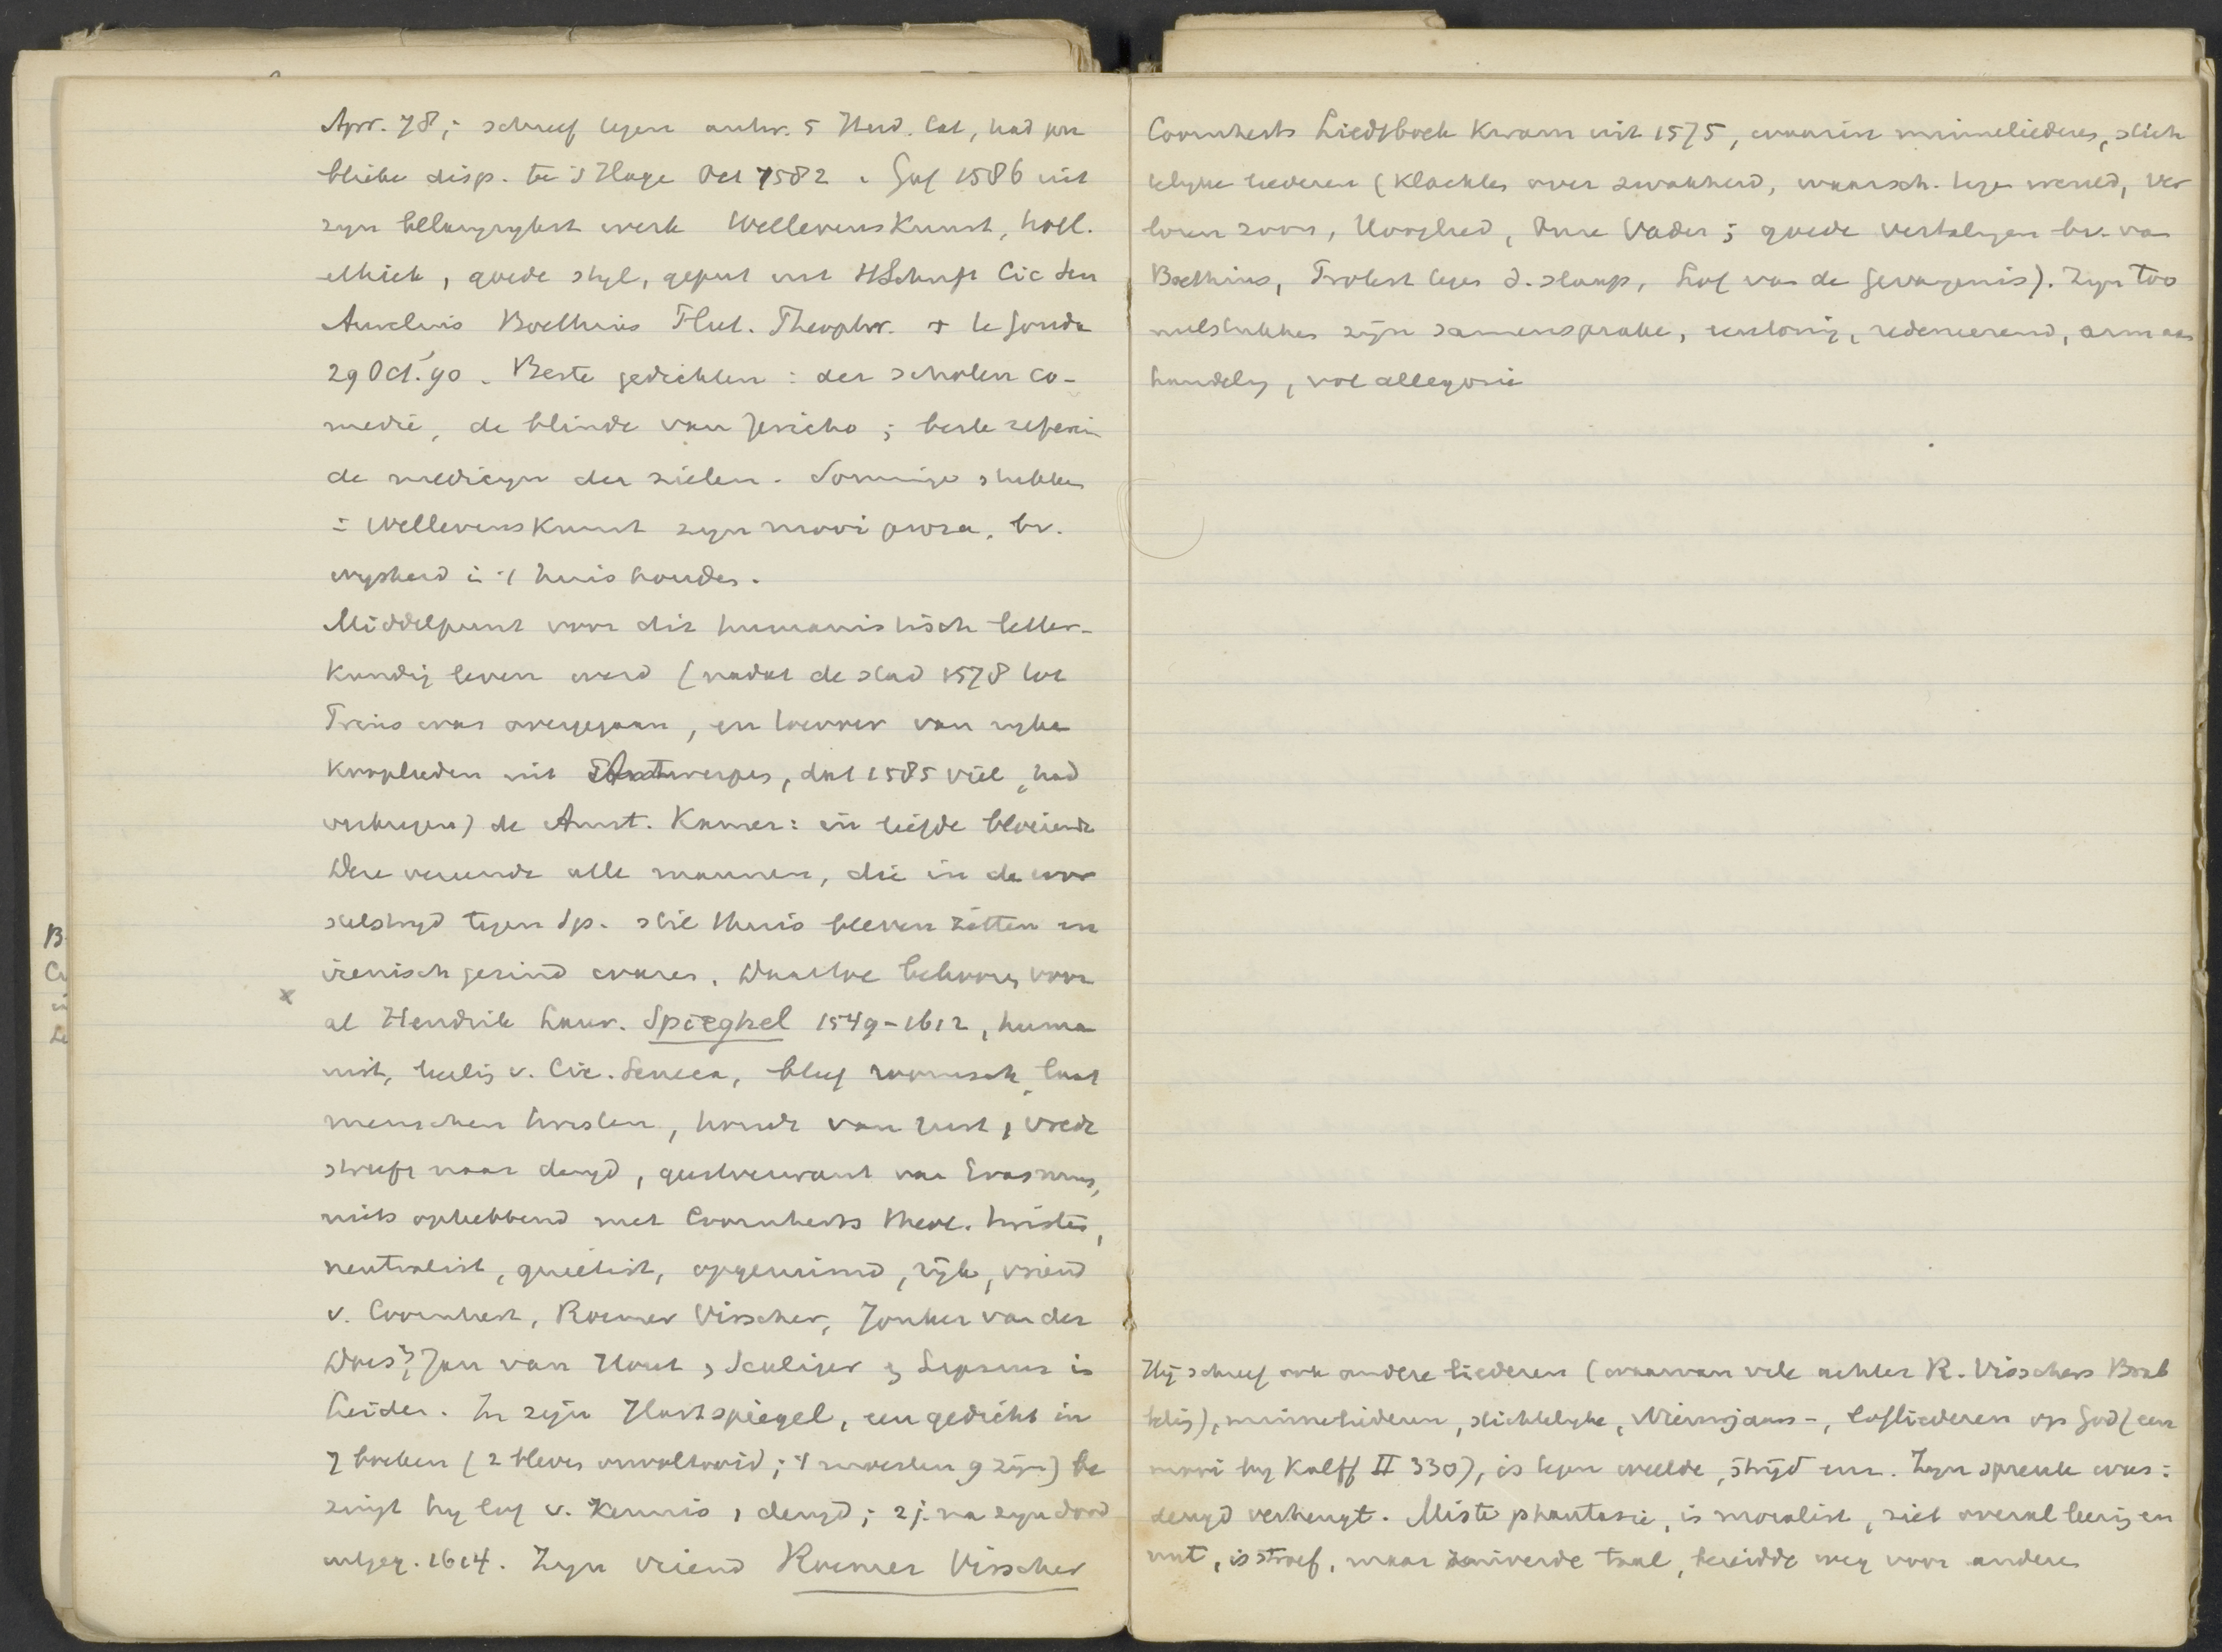 Apr. 78; schreef tegen antw. 5 Ned. Cat, had pu
blieke disp. te 's Hage Oct 1582. Gaf 1586 uit
zyn belangrykst werk Wellevens Kunst, holl.
ethiek, goede styl, geput uit HSchrift Cic Sen
Aurelius Boethius Plut. Theophr. † te Gouda
29 Oct. '90. Beste gedichten: der scholen co-
medie, de blinde van Jericho; beste referein
de medicyn der zielen. Sommige stukken
in Wellevens Kunst zyn mooi proza, bv.
wysheid in 't huis houden.
Middelpunt voor dit humanistisch letter-
kundig leven werd (nadat de stad 1578 tot
Prins was overgegaan, en toevoer van ryke
kooplieden uit Antwerpen, dat 1585 viel, had
verkregen) de Amst. Kamer: in liefde bloeiende
Deze vereende alle mannen, die in de wor
stelstryd tegen Sp. stil thuis bleven zitten en
irenisch gezind waren. Daartoe behoorde voor
x
al Hendrik Laur. Spieghel 1549-1612, huma
nist, leerling v. Cic. Seneca, bleef roomsch, laat
menschen twisten, houdt van rust, vrede
streeft naar deugd, geestverwant van Erasmus,
niets ophebbend met Coornherts theol. twisten,
neutralist, quietist, opgeruimd, ryk, vriend
v. Coornhert, Roemer Visscher, Jonker van der
Does, Jan van Hout, Scaliger en Lipsius in
Leiden. In zyn Hartspiegel, een gedicht in
7 boeken (2 bleven onvoltooid; 't moesten 9 zijn) be
zingt hy lof v. kennis, deugd; 2 j. na zyn dood
uitgeg. 1614. Zyn vriend Roemer Visscher
Coornherts Liedtboek kwam uit 1575, waarin minneliederen, stich
telyke liederen (Klachten over zwakheid, waarsch. tegen wereld, Ver
loren zoon, Hooglied, Onze Vader; goede vertalingen bv. van
Boethius, Troost tegen d. slaap, Lof van de Gevangenis). Zyn too
neelstukken zijn samenspraken, eentonig, redeneerend, arm aan
handeling, vol allegorie
Hij schreef ook andere liederen (waarvan vele achter R. Visschers Brab
beling), minneliederen, stichtelyke, Nieuwjaars-, lofliederen op God (een
mooi by Kalff II 330), is tegen weelde, strijd enz. Zyn spreuk was:
deugd verheugt. Miste phantasie, is moralist, ziet overal leering en
nut, is stroef, maar zuiverde taal, bereidde weg voor anderen